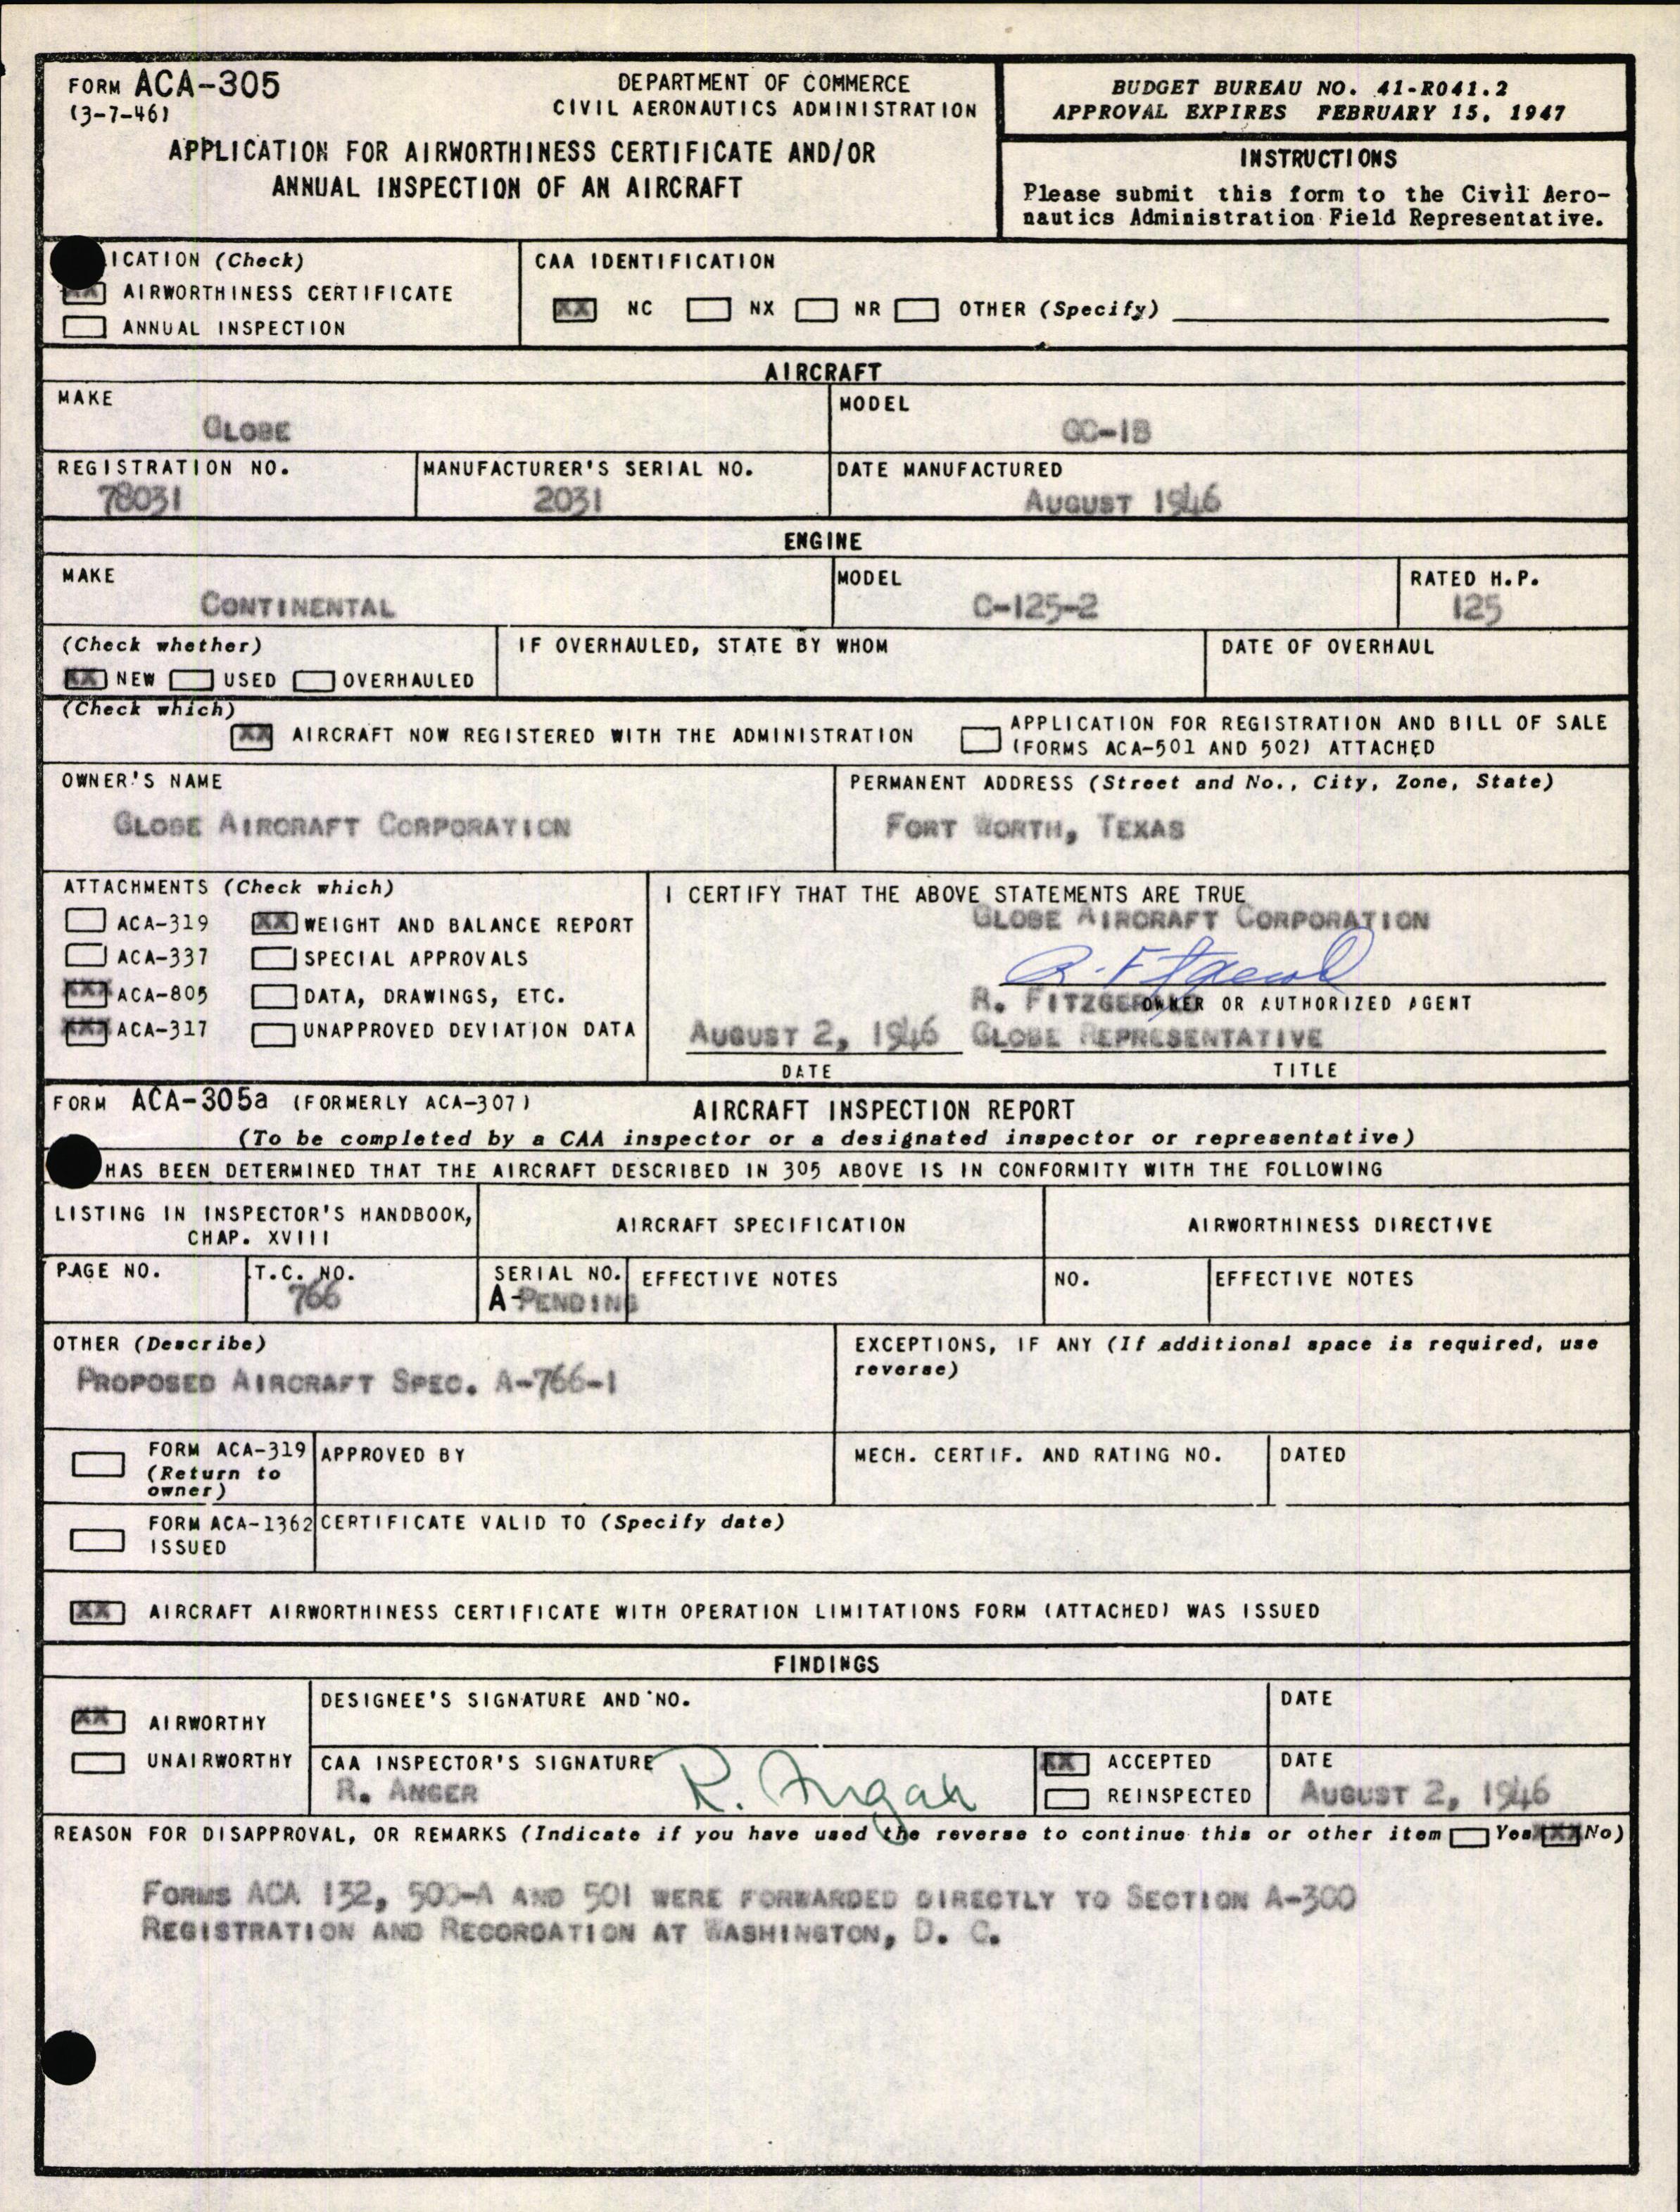 FORM ACA-305
(3-7-46)
DEPARTMENT OF COMMERCE
CIVIL AERONAUTICS ADMINISTRATION
APPLICATION FOR AIRWORTHINESS CERTIFICATE AND/OR
ANNUAL INSPECTION OF AN AIRCRAFT
BUDGET BUREAU NO. 41-R041.2
APPROVAL EXPIRES FEBRUARY 15, 1947
INSTRUCTIONS
Please submit this form to the Civil Aero-
nautics Administration Field Representative.
ICATION (Check)
XX AIRWORTHINESS CERTIFICATE
ANNUAL INSPECTION
CAA IDENTIFICATION
XX NC NX NR OTHER (Specify)
AIRCRAFT
MAKE
GLOBE
MODEL
GC-1B
REGISTRATION NO.
78031
MANUFACTURER'S SERIAL NO.
2031
DATE MANUFACTURED
AUGUST 1946
ENGINE
MAKE
CONTINENTAL
MODEL
C-125-2
RATED H.P.
125
(Check whether)
XX NEW USED OVERHAULED
IF OVERHAULED, STATE BY WHOM
DATE OF OVERHAUL
(Check which)
XX AIRCRAFT NOW REGISTERED WITH THE ADMINISTRATION
APPLICATION FOR REGISTRATION AND BILL OF SALE
(FORMS ACA-501 AND 502) ATTACHED
OWNER'S NAME
GLOBE AIRCRAFT CORPORATION
PERMANENT ADDRESS (Street and No., City, Zone, State)
FORT WORTH, TEXAS
ATTACHMENTS (Check which)
ACA-319 XX WEIGHT AND BALANCE REPORT
ACA-337 SPECIAL APPROVALS
XXX ACA-805 DATA, DRAWINGS, ETC.
XXX ACA-317 UNAPPROVED DEVIATION DATA
I CERTIFY THAT THE ABOVE STATEMENTS ARE TRUE
GLOBE AIRCRAFT CORPORATION
R. FITZGERALD OWNER OR AUTHORIZED AGENT
AUGUST 2, 1946 GLOBE REPRESENTATIVE
DATE TITLE
FORM ACA-305a (FORMERLY ACA-307) AIRCRAFT INSPECTION REPORT
(To be completed by a CAA inspector or a designated inspector or representative)
HAS BEEN DETERMINED THAT THE AIRCRAFT DESCRIBED IN 305 ABOVE IS IN CONFORMITY WITH THE FOLLOWING
LISTING IN INSPECTOR'S HANDBOOK,
CHAP. XVIII
AIRCRAFT SPECIFICATION
AIRWORTHINESS DIRECTIVE
PAGE NO.
T.C. NO.
766
SERIAL NO.
A-PENDING
EFFECTIVE NOTES
NO.
EFFECTIVE NOTES
OTHER (Describe)
PROPOSED AIRCRAFT SPEC. A-766-1
EXCEPTIONS, IF ANY (If additional space is required, use
reverse)
FORM ACA-319
(Return to
owner)
APPROVED BY
MECH. CERTIF. AND RATING NO.
DATED
FORM ACA-1362
ISSUED
CERTIFICATE VALID TO (Specify date)
XX AIRCRAFT AIRWORTHINESS CERTIFICATE WITH OPERATION LIMITATIONS FORM (ATTACHED) WAS ISSUED
FINDINGS
XX AIRWORTHY
UNAIRWORTHY
DESIGNEE'S SIGNATURE AND NO.
DATE
CAA INSPECTOR'S SIGNATURE
R. ANGER
XX ACCEPTED
REINSPECTED
DATE
AUGUST 2, 1946
REASON FOR DISAPPROVAL, OR REMARKS (Indicate if you have used the reverse to continue this or other item Yes XXX No)
FORMS ACA 132, 500-A AND 501 WERE FORWARDED DIRECTLY TO SECTION A-300
REGISTRATION AND RECORDATION AT WASHINGTON, D. C.